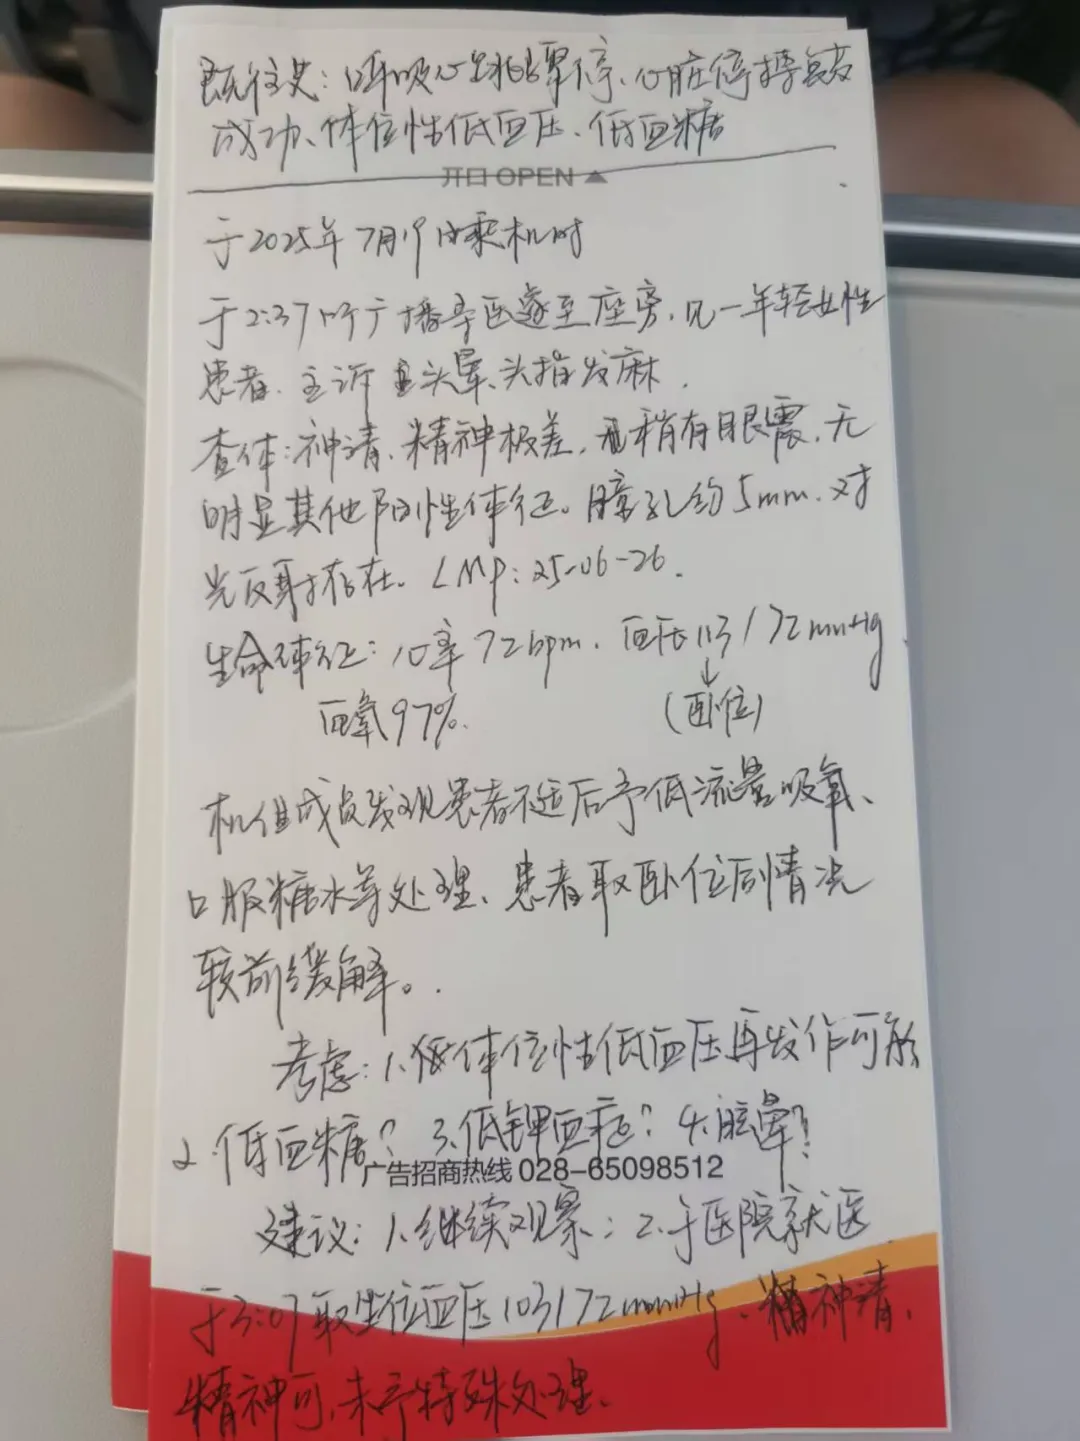 既往史：呼吸心跳骤停、心脏停搏复苏
成功、体位性低血压、低血糖
开口 OPEN
于2025年7月19日乘机时
于2:37听广播寻医遂至座旁，见一年轻女性
患者，主诉头晕、头指发麻，
查体：神清、精神极差，稍有眼震，无
明显其他阳性体征。瞳孔约5mm，对
光反射存在。LMP：25-06-26.
生命体征：心率72bpm. 血压113/72mmHg
血氧97%. (卧位)
机组成员发现患者不适后予低流量吸氧、
口服糖水等处理、患者取卧位后情况
较前缓解。
考虑：1.体位性低血压再发作可能
2.低血糖？ 3.低钾血症？ 4.眩晕？
广告招商热线 028-65098512
建议：1.继续观察；2.于医院就医
于3:07取坐位血压103/72mmHg、神清，
精神可，未予特殊处理.